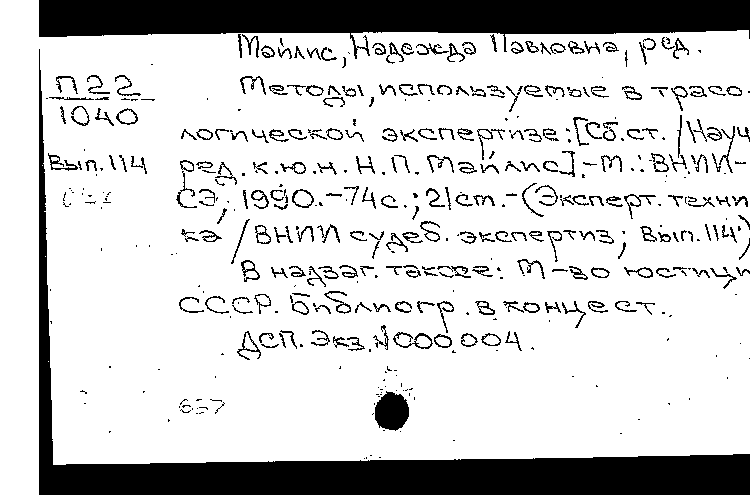 Майлис, Надежда Павловна, ред.
П22
1040
Вып. 114
Методы, используемые в трасо-
логической экспертизе: [Сб. ст. / Науч
ред. к.ю.н. Н.П. Майлис]. - М.: ВНИИ-
СЭ, 1990. - 74 с.; 21 см. - (Эксперт. техни
ка / ВНИИ судеб. экспертиз; Вып. 114)
В надзаг. также: М-во юстици
СССР. Библиогр. в конце ст.
ДСП. Экз. N 000.004.
657